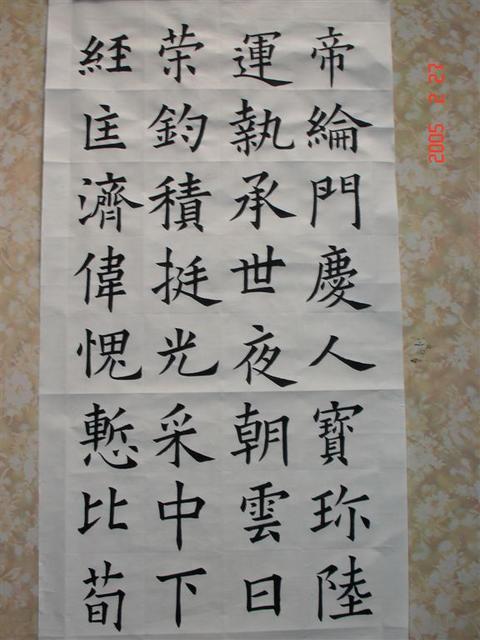 帝綸門慶人寶珎陸
運執承世夜朝雲日
荣釣積挺光采中下
經匡濟偉愧慙比荀
2005 2 27